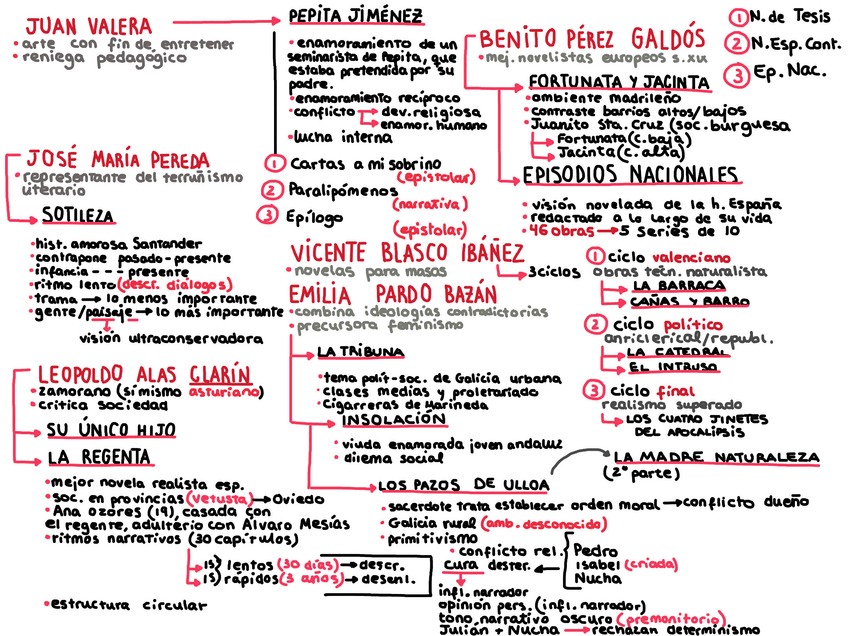 JUAN VALERA
• arte con fin de entretener
• reniega pedagógico
PEPITA JIMÉNEZ
• enamoramiento de un
seminarista de Pepita, que
estaba pretendida por su
padre.
• enamoramiento recíproco
• conflicto → dev. religiosa
→ enamor. humano
• lucha interna
① Cartas a mi sobrino
(epistolar)
② Paralipómenos
(narrativa)
③ Epílogo
(epistolar)
BENITO PÉREZ GALDÓS
• mej. novelistas europeos s.xix
① N. de Tesis
② N. Esp. Cont.
③ Ep. Nac.
FORTUNATA Y JACINTA
• ambiente madrileño
• contraste barrios altos/bajos
• Juanito Sta. Cruz (soc. burguesa
→ Fortunata (c. baja)
→ Jacinta (c. alta)
EPISODIOS NACIONALES
• visión novelada de la h. España
• redactado a lo largo de su vida
• 46 obras → 5 series de 10
JOSÉ MARÍA PEREDA
• representante del terruñismo
literario
SOTILEZA
• hist. amorosa Santander
• contrapone pasado-presente
• infancia --- presente
• ritmo lento (descr. diálogos)
• trama → lo menos importante
• gente/paisaje → lo más importante
visión ultraconservadora
VICENTE BLASCO IBÁÑEZ
• novelas para masas
→ 3 ciclos
① ciclo valenciano
obras tecn. naturalista
→ LA BARRACA
→ CAÑAS Y BARRO
② ciclo político
anticlerical/republ.
→ LA CATEDRAL
→ EL INTRUSO
③ ciclo final
realismo superado
→ LOS CUATRO JINETES
DEL APOCALIPSIS
EMILIA PARDO BAZÁN
• combina ideologías contradictorias
• precursora feminismo
LA TRIBUNA
• tema polít-soc. de Galicia urbana
• clases medias y proletariado
• Cigarreras de Marineda
INSOLACIÓN
• viuda enamorada joven andaluz
• dilema social
LOS PAZOS DE ULLOA
LA MADRE NATURALEZA
(2ª parte)
• sacerdote trata establecer orden moral → conflicto dueño
• Galicia rural (amb. desconocido)
• primitivismo
• conflicto rel.
cura dester. ←
Pedro
Isabel (criada)
Nucha
infl. narrador
opinión pers. (infl. narrador)
tono narrativo oscuro (premonitorio)
Julián + Nucha → rechazan determinismo
LEOPOLDO ALAS CLARÍN
• zamorano (sí mismo asturiano)
• critica sociedad
SU ÚNICO HIJO
LA REGENTA
• mejor novela realista esp.
• soc. en provincias (Vetusta) → Oviedo
• Ana Ozores (19), casada con
el regente, adulterio con Álvaro Mesías
• ritmos narrativos (30 capítulos)
→ 15) lentos (30 días) → descr.
→ 15) rápidos (3 años) → desenl.
• estructura circular